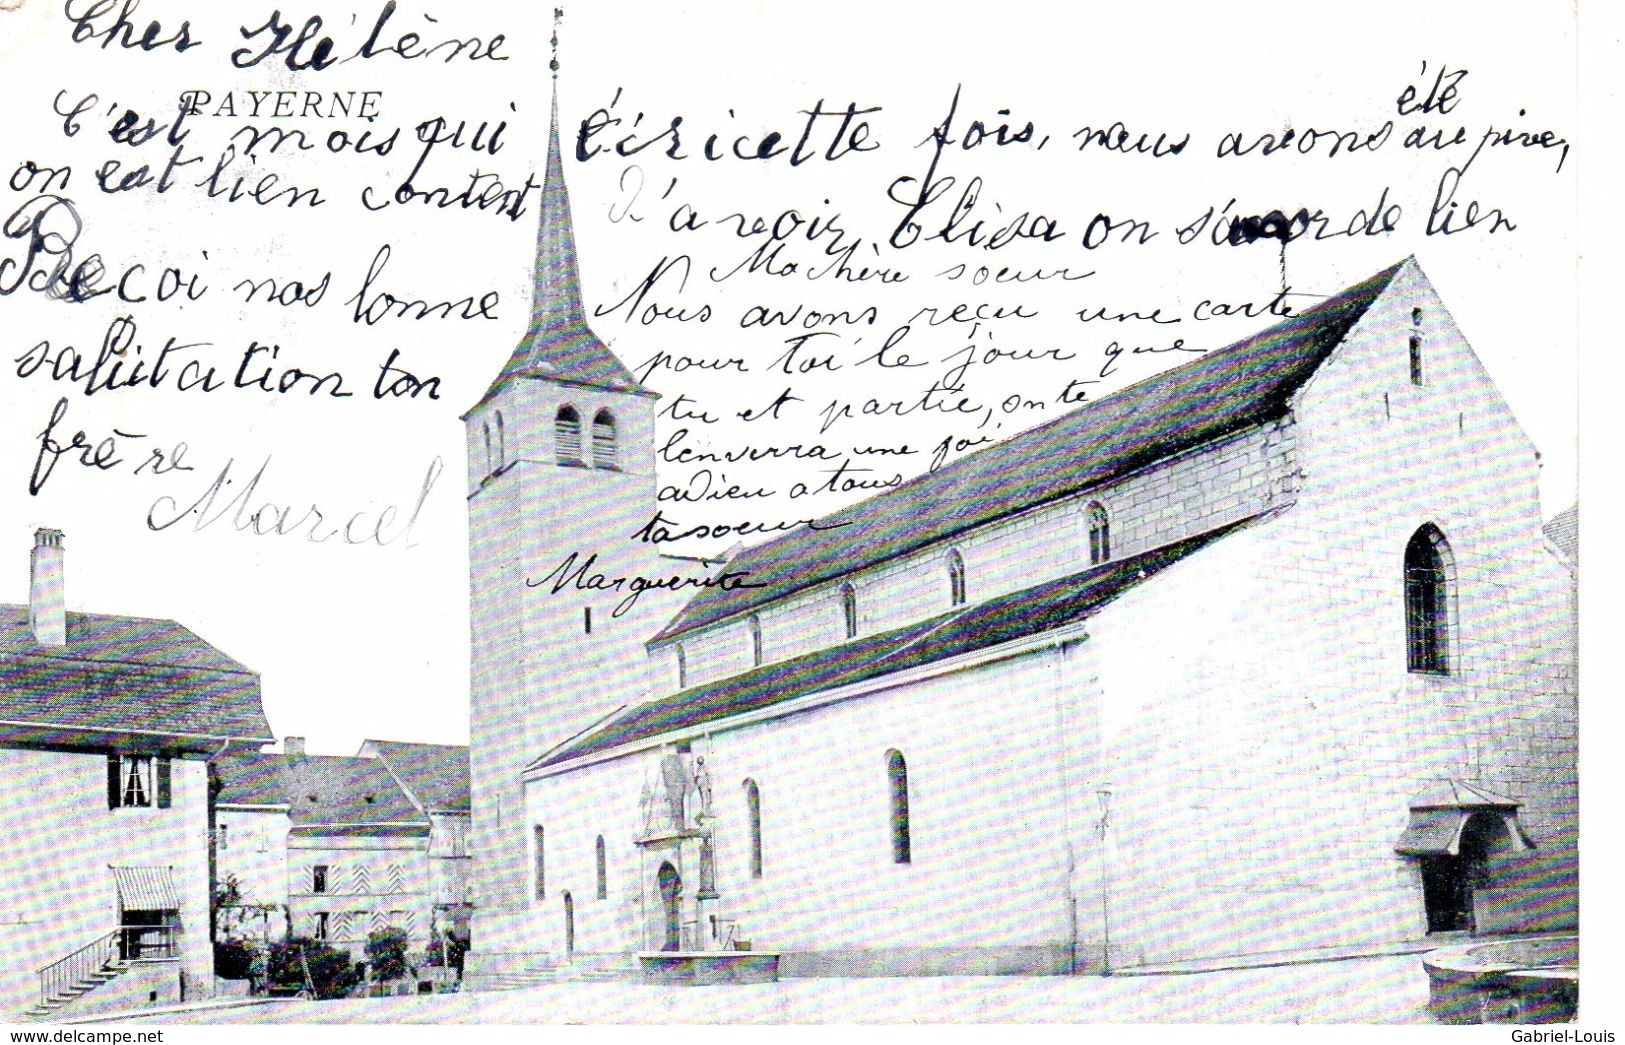 Cher Hélène
PAYERNE
C'est mois qui t'écricette fois, nous avons été au pive,
on est bien content d'avoir Elisa on s'acorde bien
Reçoi nos bonne
salutation ton
frère
Marcel
Ma chère soeur
Nous avons reçu une carte
pour toi le jour que
tu et partie, on te
l'enverra une foi
adieu a tous
ta soeur
Marguerite
www.delcampe.net
Gabriel-Louis